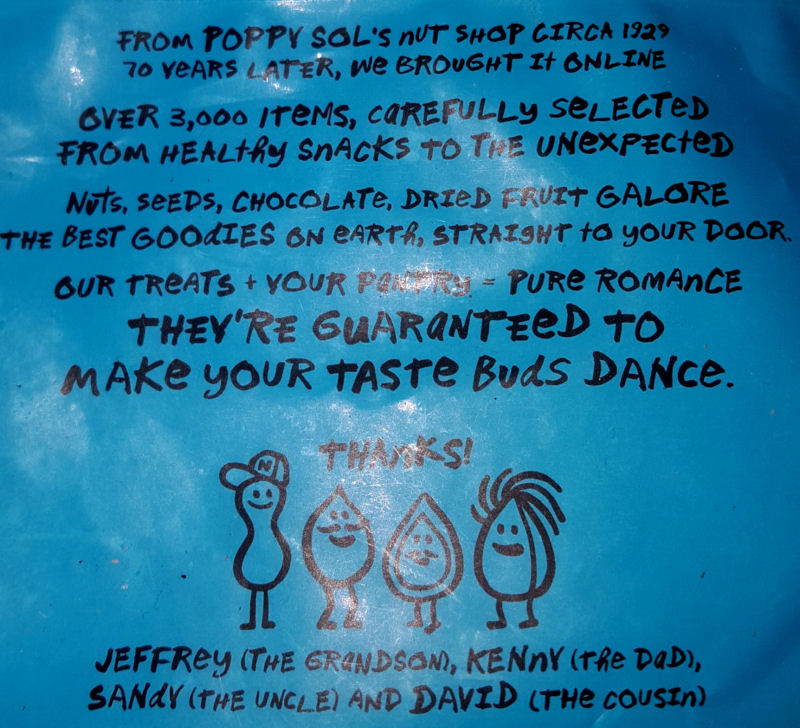 FROM POPPY SOL'S NUT SHOP CIRCA 1929
70 YEARS LATER, WE BROUGHT IT ONLINE
OVER 3,000 ITEMS, CAREFULLY SELECTED
FROM HEALTHY SNACKS TO THE UNEXPECTED
NUTS, SEEDS, CHOCOLATE, DRIED FRUIT GALORE
THE BEST GOODIES ON EARTH, STRAIGHT TO YOUR DOOR.
OUR TREATS + YOUR PANTRY = PURE ROMANCE
THEY'RE GUARANTEED TO
MAKE YOUR TASTE BUDS DANCE.
THANKS!
N
JEFFREY (THE GRANDSON), KENNY (THE DAD),
SANDY (THE UNCLE) AND DAVID (THE COUSIN)